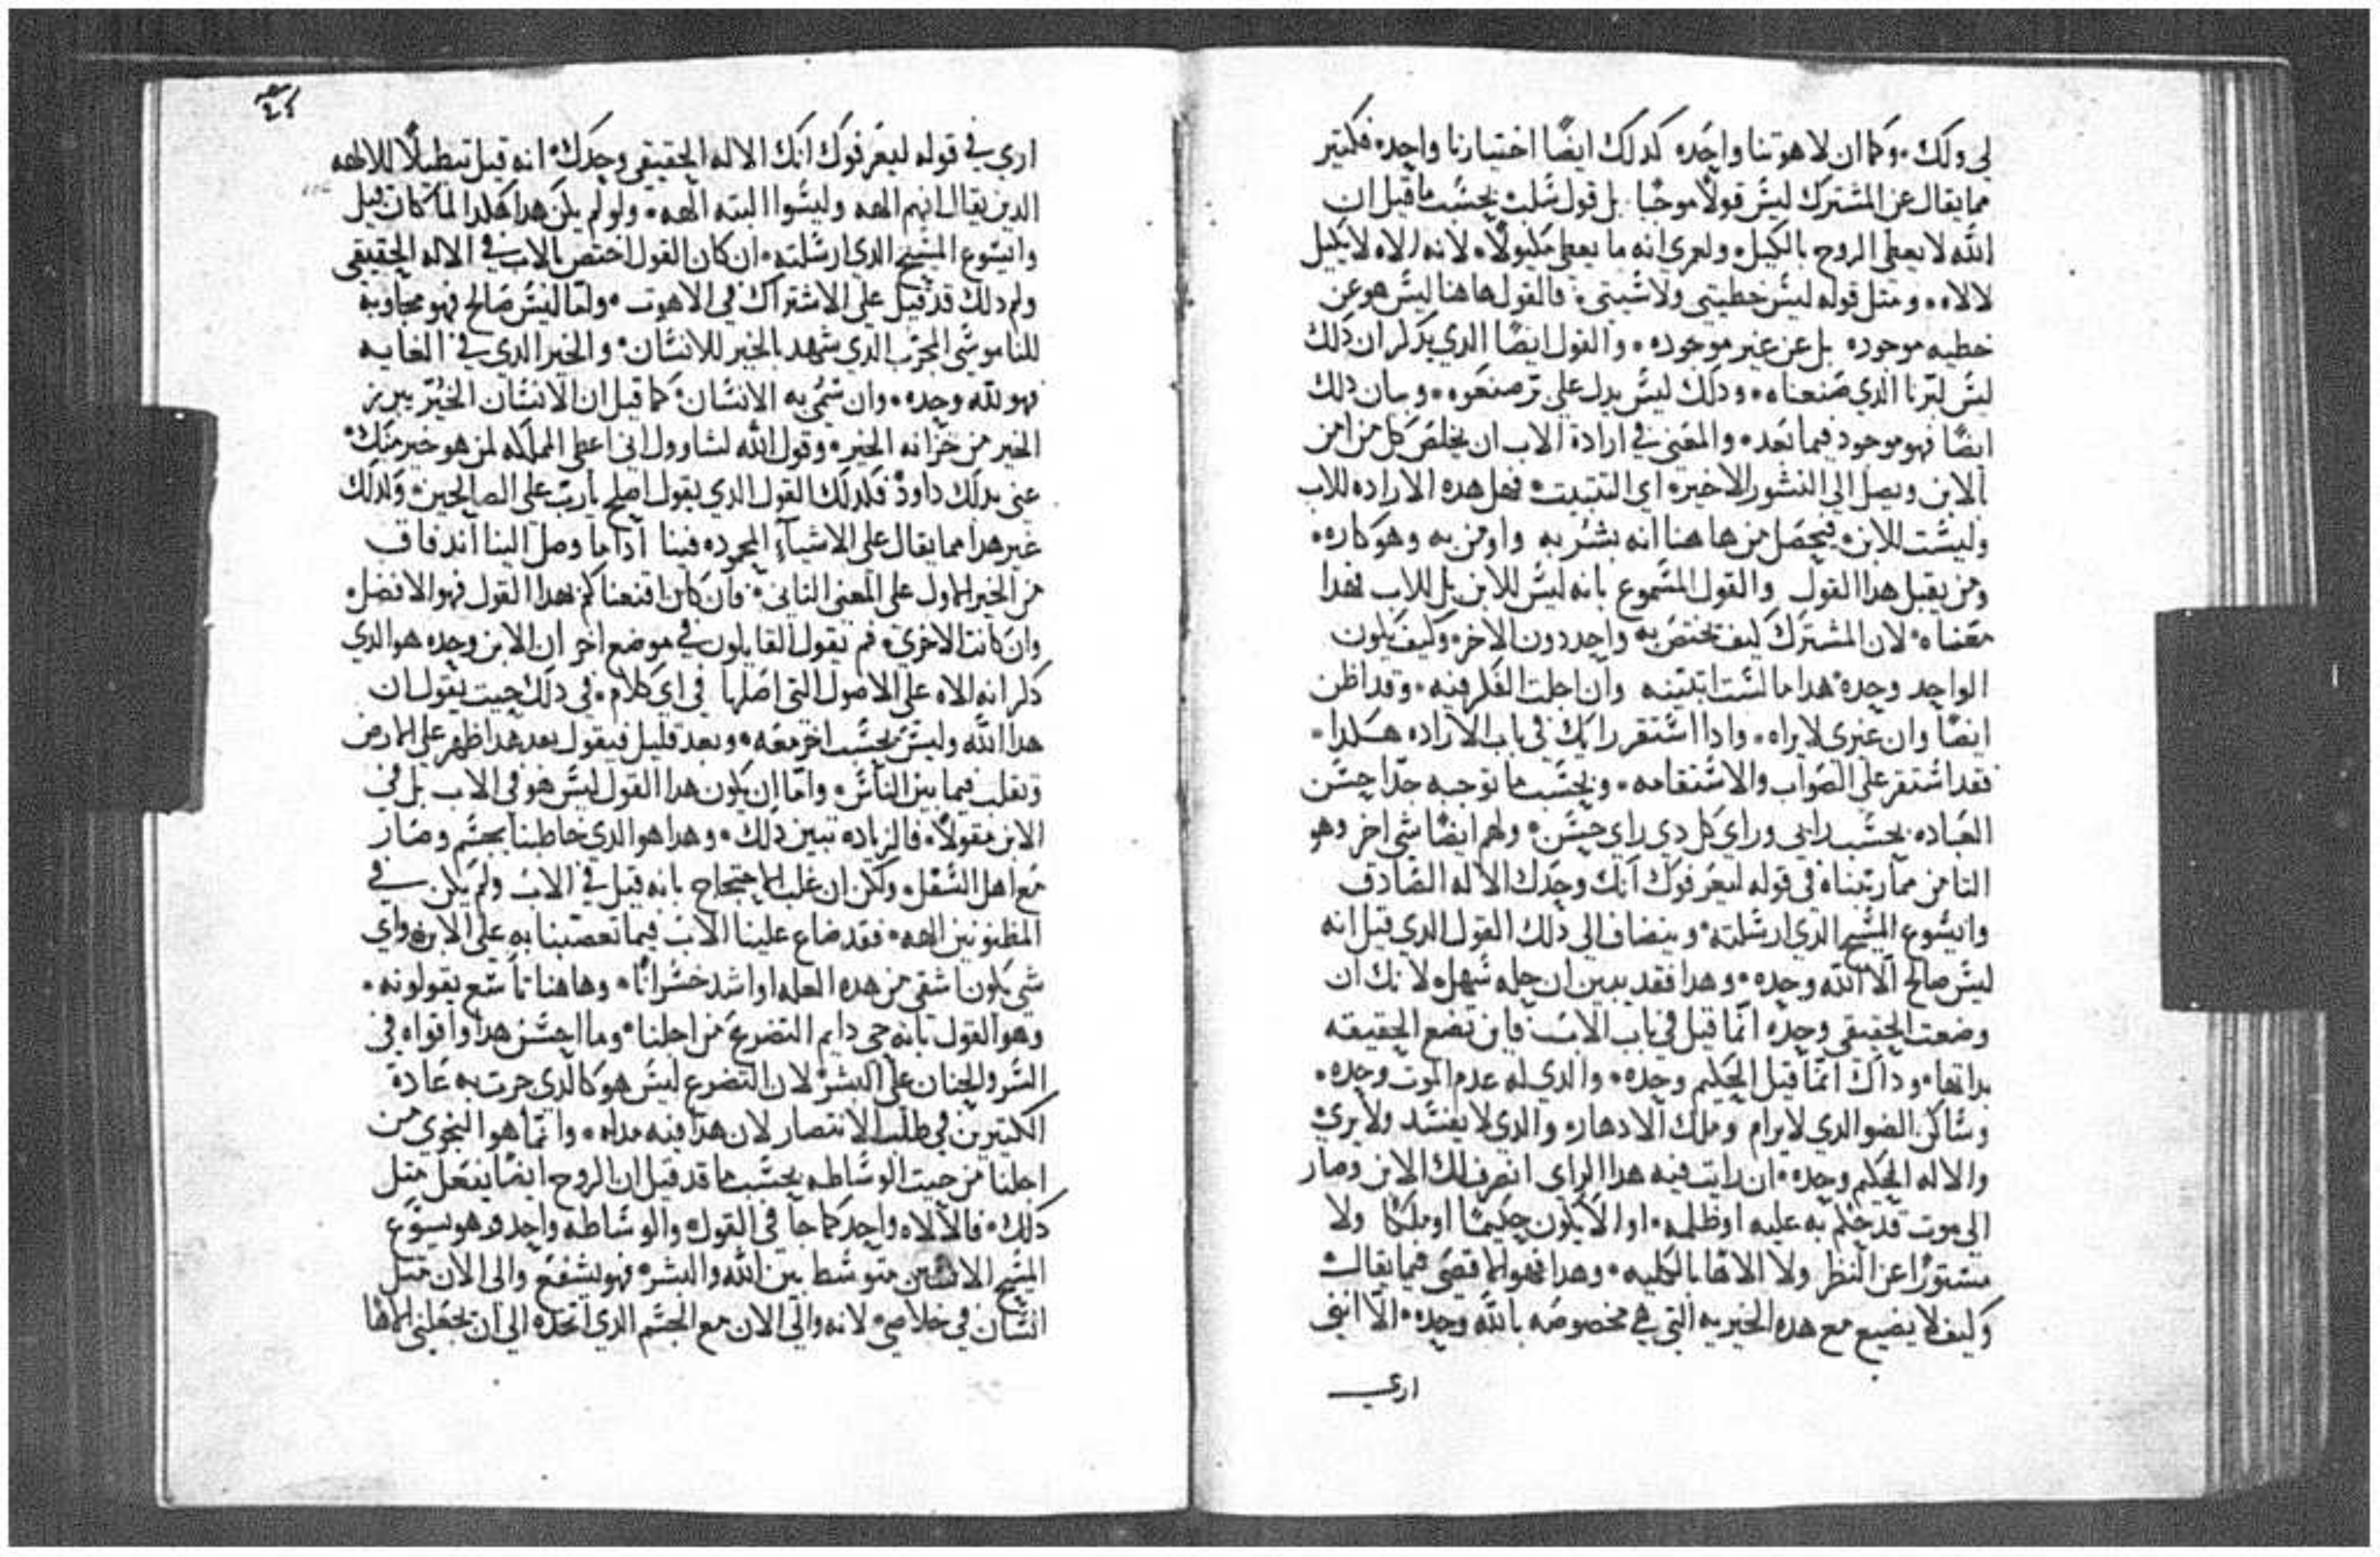 لي ولك. وكما ان لاهوتنا واحده كدلك ايضًا اختيارنا واحده فكتير
مما يقال عن المشترك ليس قولًا موجبًا بل قول سلب بحسب ما قيل ان
الله لا يعطي الروح بالكيل. ولعري انه ما يعطي مكيولًا. لانه الاه لا يكيل
لالاه. ومتل قوله ليس خطيتي ولا سيتي. فالقول هاهنا ليس هو عن
خطيه موجوده بل عن غير موجوده. والقول ايضًا الدي يدكر ان دلك
ليس لبرنا الدي صنعناه. ودلك ليس يدل على بر صنعوه. وبيان دلك
ايضًا فهو موجود فيما بعد. والمعنى في ارادة الاب ان يخلص كل من امن
بالابن ويصل الي النشور الاخير. اي التتبيت. فهل هده الاراده للاب
وليست للابن. فيحصل من هاهنا انه بشر به واومن به وهو كاره.
ومن يقبل هدا القول والقول المسموع بانه ليس للابن بل للاب فهدا
معناه. لان المشترك كيف يختص به واحد دون الاخر. وكيف يكون
الواحد وحده هدا ما لست اتبينه وان اجلت الفكر فيه. وقد اظن
ايضًا وان غيري لا يراه. وادا استقر رايك في باب الاراده هكدا.
فقد استقر على الصواب والاستقامه. وبحسب ما توجبه جدًا حسن
العباده. بحسب رايي وراي كل دي راي حسن. ولهم ايضًا شي اخر وهو
التامن مما رتبناه في قوله ليعرفوك انك وحدك الاله الصادق
وايسوع المسيح الدي ارسلته. وينضاف الى دلك القول الدي قيل انه
ليس صالح الا الله وحده. وهدا فقد يبين ان حله سهل. لانك ان
وضعت الحقيقي وحده انما قيل في باب الاب فاين تضع الحقيقه
بداتها. وداك انما قيل الحكيم وحده. والدي له عدم الموت وحده.
وساكن الضو الدي لا يرام وملك الادهار. والدي لا يفسد ولا يرى
والاله الحكيم وحده. ان رايت فيه هدا الراي انصرف لك الابن وصار
الى موت قد حكم به عليه او ظلمه. او الا يكون حكيمًا او ملكًا ولا
مستورًا عن النظر ولا الاهًا بالكليه. وهدا فهو الاقصى فيما يقال
وكيف لا يضيع مع هده الخيريه التي هي مخصوصه بالله وحده. الا انني
اري
اري في قوله ليعرفوك انك الاله الحقيقي وحدك. انه قيل تبطيلًا للالهه
الدين يقال انهم الهه وليسوا البته الهه. ولو لم يكن هدا هكدا لما كان قيل
وايسوع المسيح الدي ارسلته. ان كان القول اختص بالاب في الاله الحقيقي
ولم دلك قد قيل على الاشتراك في الاهوت. ولما ليس صالح فهو مجاوبة
للناموسي المجرب الدي شهد بالخير للانسان. والخير الدي في الغايه
فهو لله وحده. وان سمي به الانسان. كما قيل ان الانسان الخير يبرز
الخير من خزانه الخير. وقول الله لشاوول اني اعطي المملكه لمن هو خير منك.
عنى بدلك داود. فكدلك القول الدي يقول اصلح يا رب على الصالحين. وكدلك
غير هدا مما يقال على الاشياء المحموده فينا ادا ما وصل الينا اندفاق
من الخير الاول على المعنى التاني. فان كان اقنعناكم بهدا القول فهو الافضل.
وان كانت الاخرى. فم يقول القايلون في موضع اخر ان الابن وحده هو الدي
دكر انه الاه على الاصول التي اصلها في اي كلام. في دلك حيت يقول ان
هدا الله وليس يحسب اخر معه. وبعد قليل فيقول بعد هدا ظهر على الارض
وتقلب فيما بين الناس. واما ان يكون هدا القول ليس هو في الاب بل في
الابن مقولًا. فالزياده تبين دلك. وهدا هو الدي خاطبنا بجسم وصار
مع اهل السفل. ولكن ان غلب الاحتجاج بانه قيل في الاب ولم يكن في
المظنونين الهه. فقد ضاع علينا الاب فيما تعصبنا به على الابن. واي
شي يكون اشقى من هده العله او اشد خسرانًا. وهاهنا تاسع يقولونه.
وهو القول بانه حي دايم التضرع من اجلنا. وما احسن هدا واقواه في
السر والحنان على البشر. لان التضرع ليس هو كالدي جرت به عادة
الكتيرين في طلب الانتصار لان هدا فيه مدله. وانما هو النجوي من
اجلنا من حيت الوساطه بحسب ما قد قيل ان الروح ايضًا يفعل متل
دلك. فالالاه واحد كما جا في القول. والوساطه واحد وهو يسوع
المسيح الانسان متوسط بين الله والبشر. فهو يشفع والى الان متل
انسان في خلاصي. لانه والى الان مع الجسم الدي اتخده الى ان يجعلني الاهًا